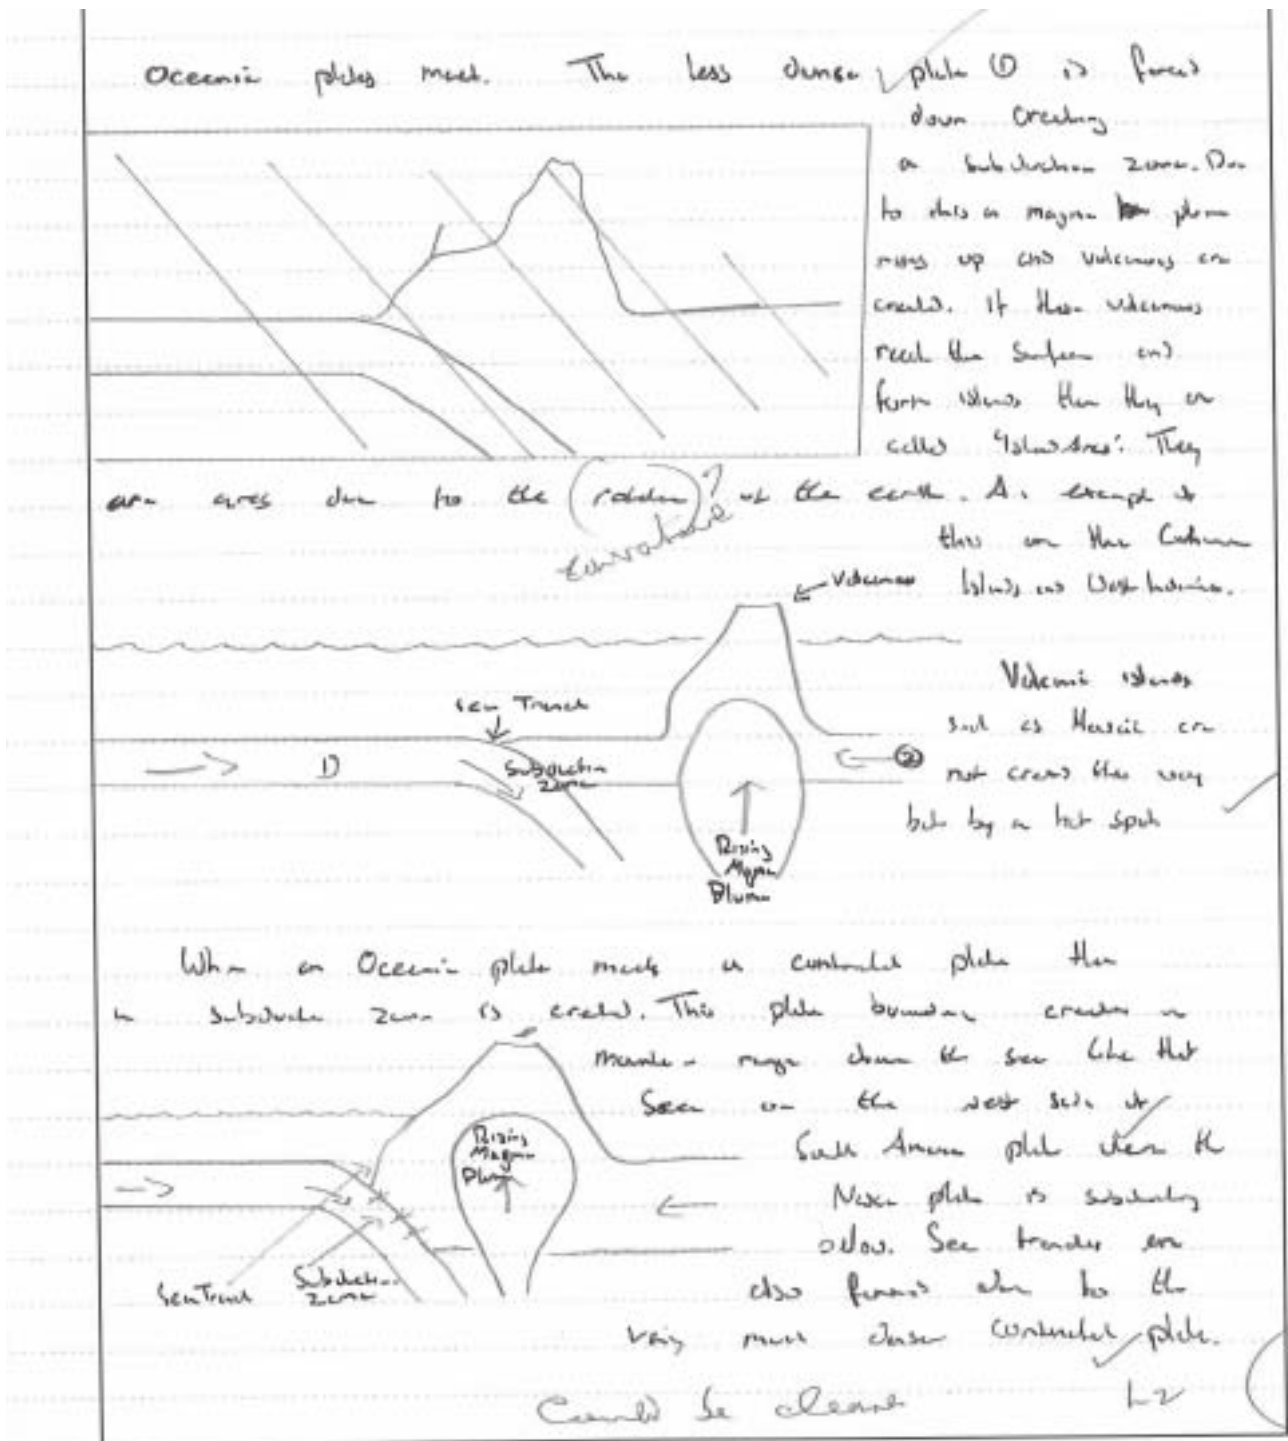 Oceanic plates meet. The less dense plate ① is forced
down creating
a subduction zone. Due
to this a magma plume
rises up and volcanoes are
created. If these volcanoes
reach the surface and
form islands then they are
called "Island Arcs". They
are arcs due to the rotation ? of the earth. An example of
curvature
this are the Islands and West Indies.
Volcanoes
Volcanic islands
such as Hawaii are
not created this way
but by a hot spot
Sea Trench
Subduction
Zone
1)
②
Rising
Magma
Plume
When an Oceanic plate meets a continental plate then
a subduction zone is created. This plate boundary creates a
mountain range down the sea like that
seen on the west side of
South America plate where the
Nazca plate is subducting
below. Sea trenches are
also formed due to the
very much denser continental plate.
Rising
Magma
Plume
Sea Trench
Subduction
Zone
Could be clearer L2